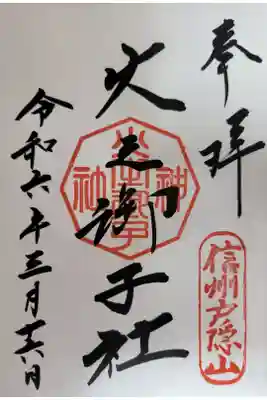 奉拝
信州戸隠山
火之御子社
令和六年三月十六日